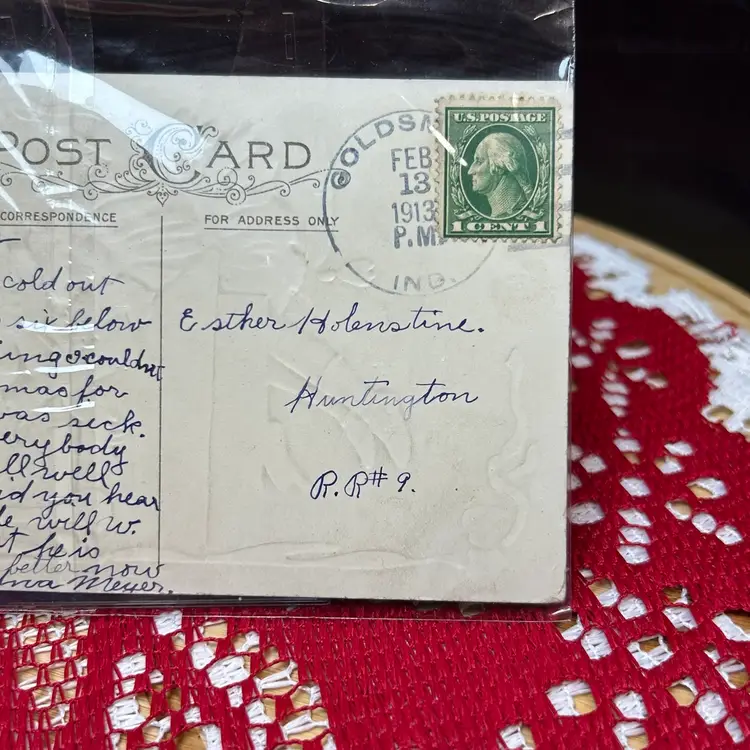 POST CARD
CORRESPONDENCE
FOR ADDRESS ONLY
GOLDSM
FEB
13
1913
P.M.
IND.
U.S. POSTAGE
1 CENT 1
cold out
six below
couldn't
mas for
was sick.
erybody
ll well
id you hear
le will w.
t he is
better now
Meyer.
Esther Holenstine.
Huntington
R. R# 9.